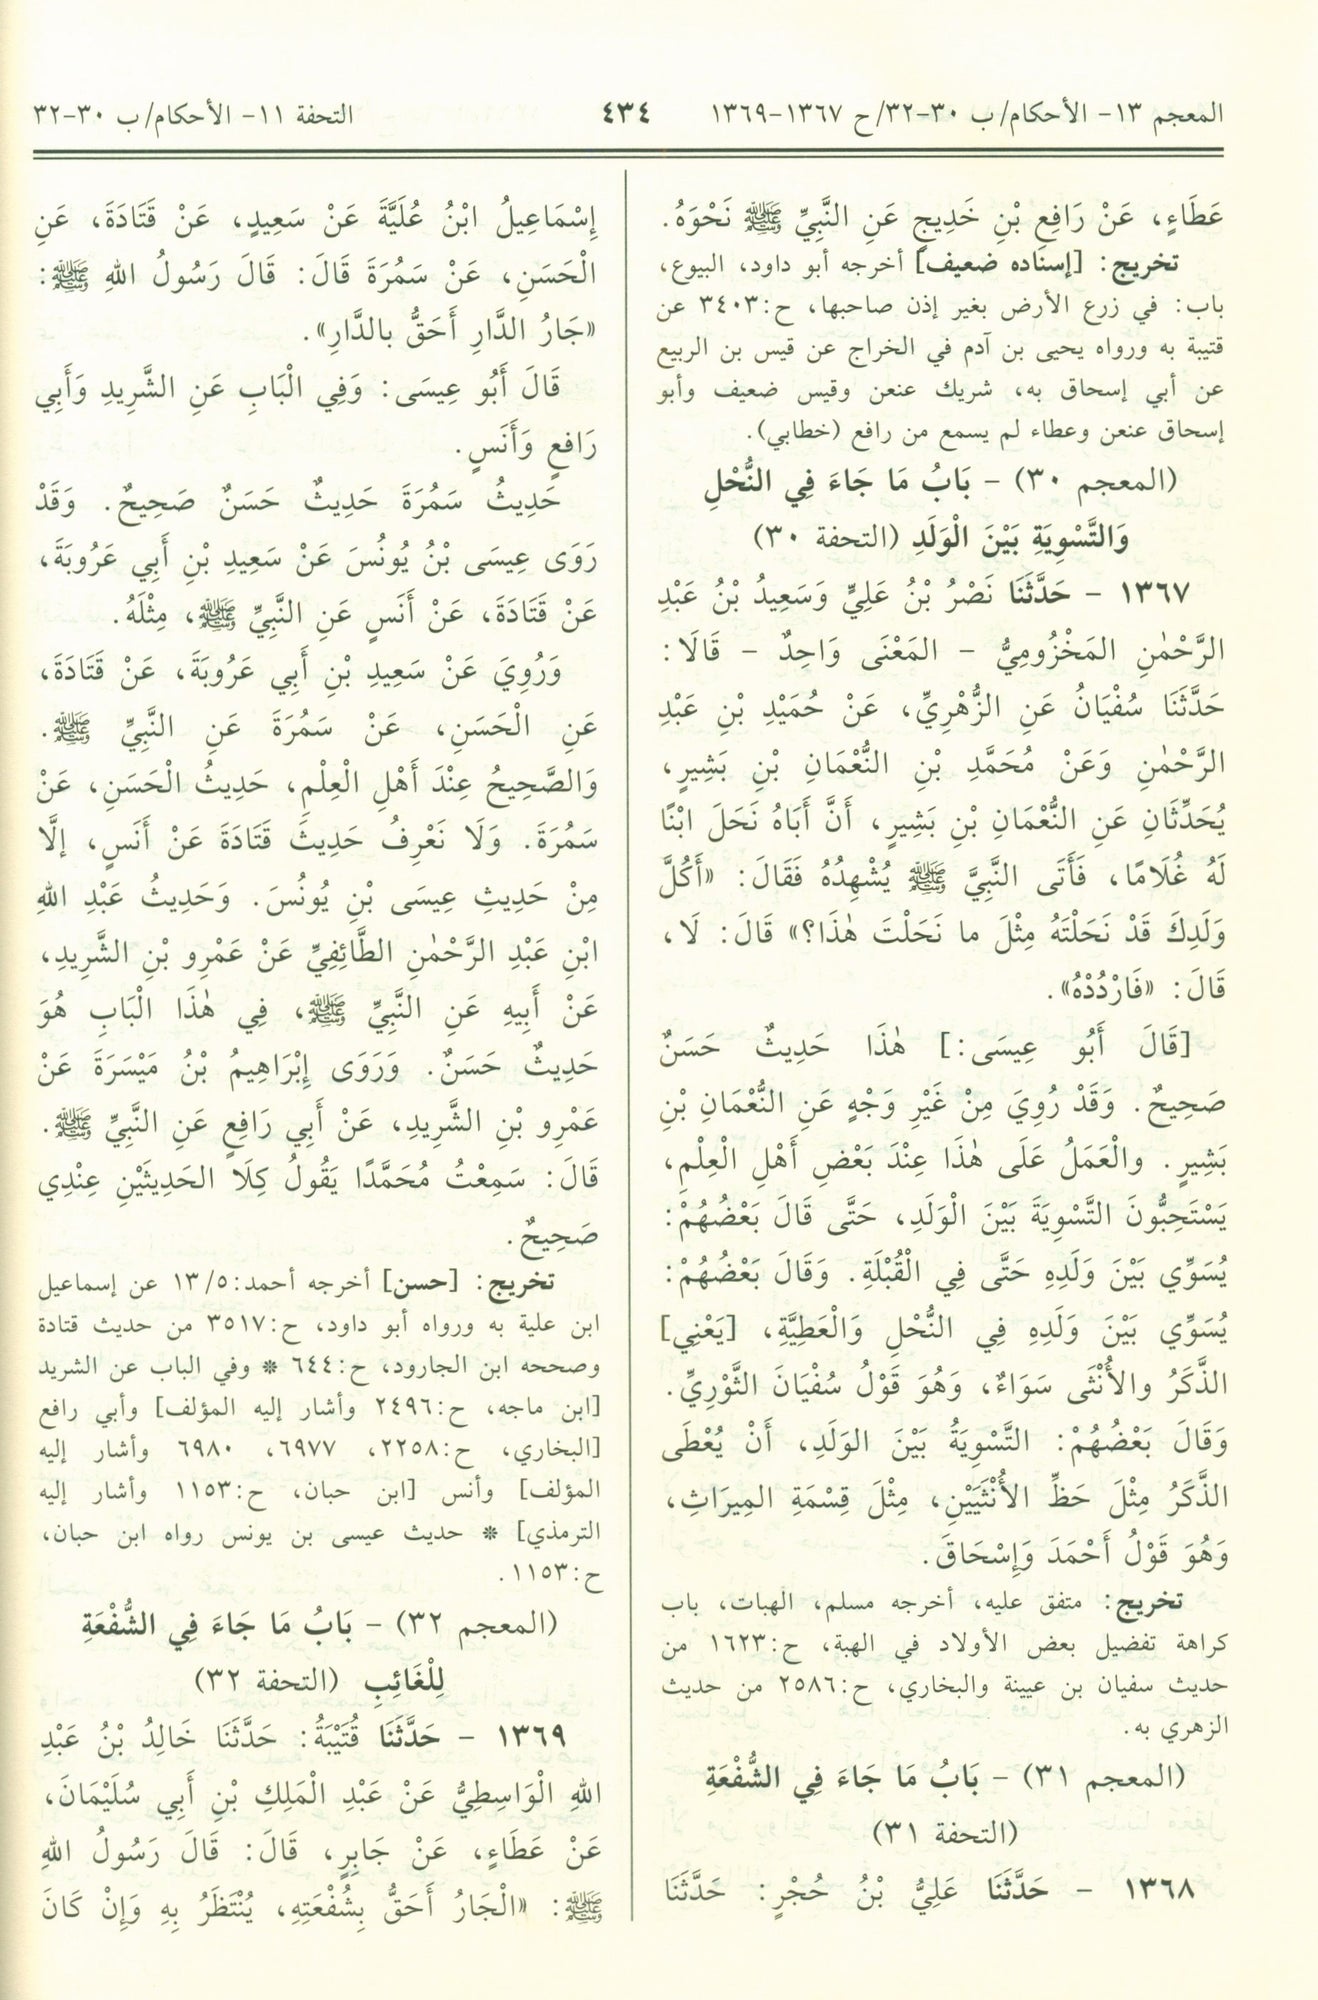 المعجم ١٣- الأحكام/ ب ٣٠-٣٢/ ح ١٣٦٧-١٣٦٩ ٤٣٤ التحفة ١١- الأحكام/ ب ٣٠-٣٢
عَطَاءٍ، عَنْ رَافِعِ بْنِ خَدِيجٍ عَنِ النَّبِيِّ ﷺ نَحْوَهُ.
تخريج: [إسناده ضعيف] أخرجه أبو داود، البيوع،
باب: في زرع الأرض بغير إذن صاحبها، ح:٣٤٠٣ عن
قتيبة به ورواه يحيى بن آدم في الخراج عن قيس بن الربيع
عن أبي إسحاق به، شريك عنعن وقيس ضعيف وأبو
إسحاق عنعن وعطاء لم يسمع من رافع (خطابي).
(المعجم ٣٠) - بَابُ مَا جَاءَ فِي النُّحْلِ
وَالتَّسْوِيَةِ بَيْنَ الْوَلَدِ (التحفة ٣٠)
١٣٦٧ - حَدَّثَنَا نَصْرُ بْنُ عَلِيٍّ وَسَعِيدُ بْنُ عَبْدِ
الرَّحْمٰنِ المَخْزُومِيُّ - المَعْنَى وَاحِدٌ - قَالَا:
حَدَّثَنَا سُفْيَانُ عَنِ الزُّهْرِيِّ، عَنْ حُمَيْدِ بْنِ عَبْدِ
الرَّحْمٰنِ وَعَنْ مُحَمَّدِ بْنِ النُّعْمَانِ بْنِ بَشِيرٍ،
يُحَدِّثَانِ عَنِ النُّعْمَانِ بْنِ بَشِيرٍ، أَنَّ أَبَاهُ نَحَلَ ابْنًا
لَهُ غُلَامًا، فَأَتَى النَّبِيَّ ﷺ يُشْهِدُهُ فَقَالَ: «أَكُلَّ
وَلَدِكَ قَدْ نَحَلْتَهُ مِثْلَ ما نَحَلْتَ هٰذَا؟» قَالَ: لَا،
قَالَ: «فَارْدُدْهُ».
[قَالَ أَبُو عِيسَى:] هٰذَا حَدِيثٌ حَسَنٌ
صَحِيحٌ. وَقَدْ رُوِيَ مِنْ غَيْرِ وَجْهٍ عَنِ النُّعْمَانِ بْنِ
بَشِيرٍ. والْعَمَلُ عَلَى هٰذَا عِنْدَ بَعْضِ أَهْلِ الْعِلْمِ،
يَسْتَحِبُّونَ التَّسْوِيَةَ بَيْنَ الْوَلَدِ، حَتَّى قَالَ بَعْضُهُمْ:
يُسَوِّي بَيْنَ وَلَدِهِ حَتَّى فِي الْقُبْلَةِ. وَقَالَ بَعْضُهُمْ:
يُسَوِّي بَيْنَ وَلَدِهِ فِي النُّحْلِ وَالْعَطِيَّةِ، [يَعْنِي]
الذَّكَرُ والأُنْثَى سَوَاءٌ، وَهُوَ قَوْلُ سُفْيَانَ الثَّوْرِيِّ.
وَقَالَ بَعْضُهُمْ: التَّسْوِيَةُ بَيْنَ الوَلَدِ، أَنْ يُعْطَى
الذَّكَرُ مِثْلَ حَظِّ الأُنْثَيَيْنِ، مِثْلَ قِسْمَةِ المِيرَاثِ،
وَهُوَ قَوْلُ أَحْمَدَ وَإِسْحَاقَ.
تخريج: متفق عليه، أخرجه مسلم، الهبات، باب
كراهة تفضيل بعض الأولاد في الهبة، ح:١٦٢٣ من
حديث سفيان بن عيينة والبخاري، ح:٢٥٨٦ من حديث
الزهري به.
(المعجم ٣١) - بَابُ مَا جَاءَ فِي الشُّفْعَةِ
(التحفة ٣١)
١٣٦٨ - حَدَّثَنَا عَلِيُّ بْنُ حُجْرٍ: حَدَّثَنَا
إِسْمَاعِيلُ ابْنُ عُلَيَّةَ عَنْ سَعِيدٍ، عَنْ قَتَادَةَ، عَنِ
الْحَسَنِ، عَنْ سَمُرَةَ قَالَ: قَالَ رَسُولُ اللهِ ﷺ:
«جَارُ الدَّارِ أَحَقُّ بالدَّارِ».
قَالَ أَبُو عِيسَى: وَفِي الْبَابِ عَنِ الشَّرِيدِ وَأَبِي
رَافعٍ وَأَنَسٍ.
حَدِيثُ سَمُرَةَ حَدِيثٌ حَسَنٌ صَحِيحٌ. وَقَدْ
رَوَى عِيسَى بْنُ يُونُسَ عَنْ سَعِيدِ بْنِ أَبِي عَرُوبَةَ،
عَنْ قَتَادَةَ، عَنْ أَنَسٍ عَنِ النَّبِيِّ ﷺ، مِثْلَهُ.
وَرُوِيَ عَنْ سَعِيدِ بْنِ أَبِي عَرُوبَةَ، عَنْ قَتَادَةَ،
عَنِ الْحَسَنِ، عَنْ سَمُرَةَ عَنِ النَّبِيِّ ﷺ.
وَالصَّحِيحُ عِنْدَ أَهْلِ الْعِلْمِ، حَدِيثُ الْحَسَنِ، عَنْ
سَمُرَةَ. وَلَا نَعْرِفُ حَدِيثَ قَتَادَةَ عَنْ أَنَسٍ، إلَّا
مِنْ حَدِيثِ عِيسَى بْنِ يُونُسَ. وَحَدِيثُ عَبْدِ اللهِ
ابْنِ عَبْدِ الرَّحْمٰنِ الطَّائِفِيِّ عَنْ عَمْرِو بْنِ الشَّرِيدِ،
عَنْ أَبِيهِ عَنِ النَّبِيِّ ﷺ، فِي هٰذَا الْبَابِ هُوَ
حَدِيثٌ حَسَنٌ. وَرَوَى إِبْرَاهِيمُ بْنُ مَيْسَرَةَ عَنْ
عَمْرِو بْنِ الشَّرِيدِ، عَنْ أَبِي رَافِعٍ عَنِ النَّبِيِّ ﷺ.
قَالَ: سَمِعْتُ مُحَمَّدًا يَقُولُ كِلَا الحَدِيثَيْنِ عِنْدِي
صَحِيحٌ.
تخريج: [حسن] أخرجه أحمد:١٣/٥ عن إسماعيل
ابن علية به ورواه أبو داود، ح:٣٥١٧ من حديث قتادة
وصححه ابن الجارود، ح:٦٤٤ * وفي الباب عن الشريد
[ابن ماجه، ح:٢٤٩٦ وأشار إليه المؤلف] وأبي رافع
[البخاري، ح:٢٢٥٨، ٦٩٧٧، ٦٩٨٠ وأشار إليه
المؤلف] وأنس [ابن حبان، ح:١١٥٣ وأشار إليه
الترمذي] * حديث عيسى بن يونس رواه ابن حبان،
ح:١١٥٣.
(المعجم ٣٢) - بَابُ مَا جَاءَ فِي الشُّفْعَةِ
لِلْغَائِبِ (التحفة ٣٢)
١٣٦٩ - حَدَّثَنَا قُتَيْبَةُ: حَدَّثَنَا خَالِدُ بْنُ عَبْدِ
اللهِ الْوَاسِطِيُّ عَنْ عَبْدِ الْمَلِكِ بْنِ أَبِي سُلَيْمَانَ،
عَنْ عَطَاءٍ، عَنْ جَابِرٍ، قَالَ: قَالَ رَسُولُ اللهِ
ﷺ: «الْجَارُ أَحَقُّ بِشُفْعَتِهِ، يُنْتَظَرُ بِهِ وَإِنْ كَانَ